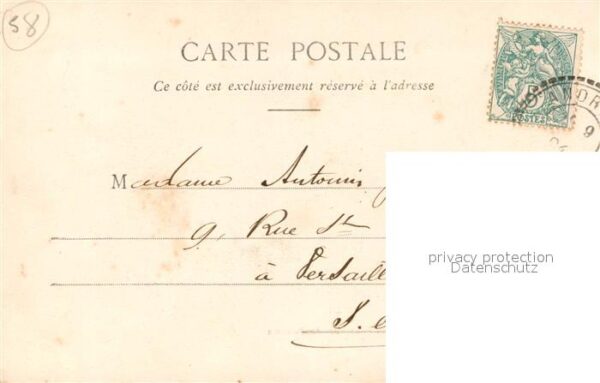 58
CARTE POSTALE
Ce côté est exclusivement réservé à l'adresse
5
POSTES
ANDR
9
Madame Antonin
9, Rue St
à Versaill
S. e
privacy protection
Datenschutz